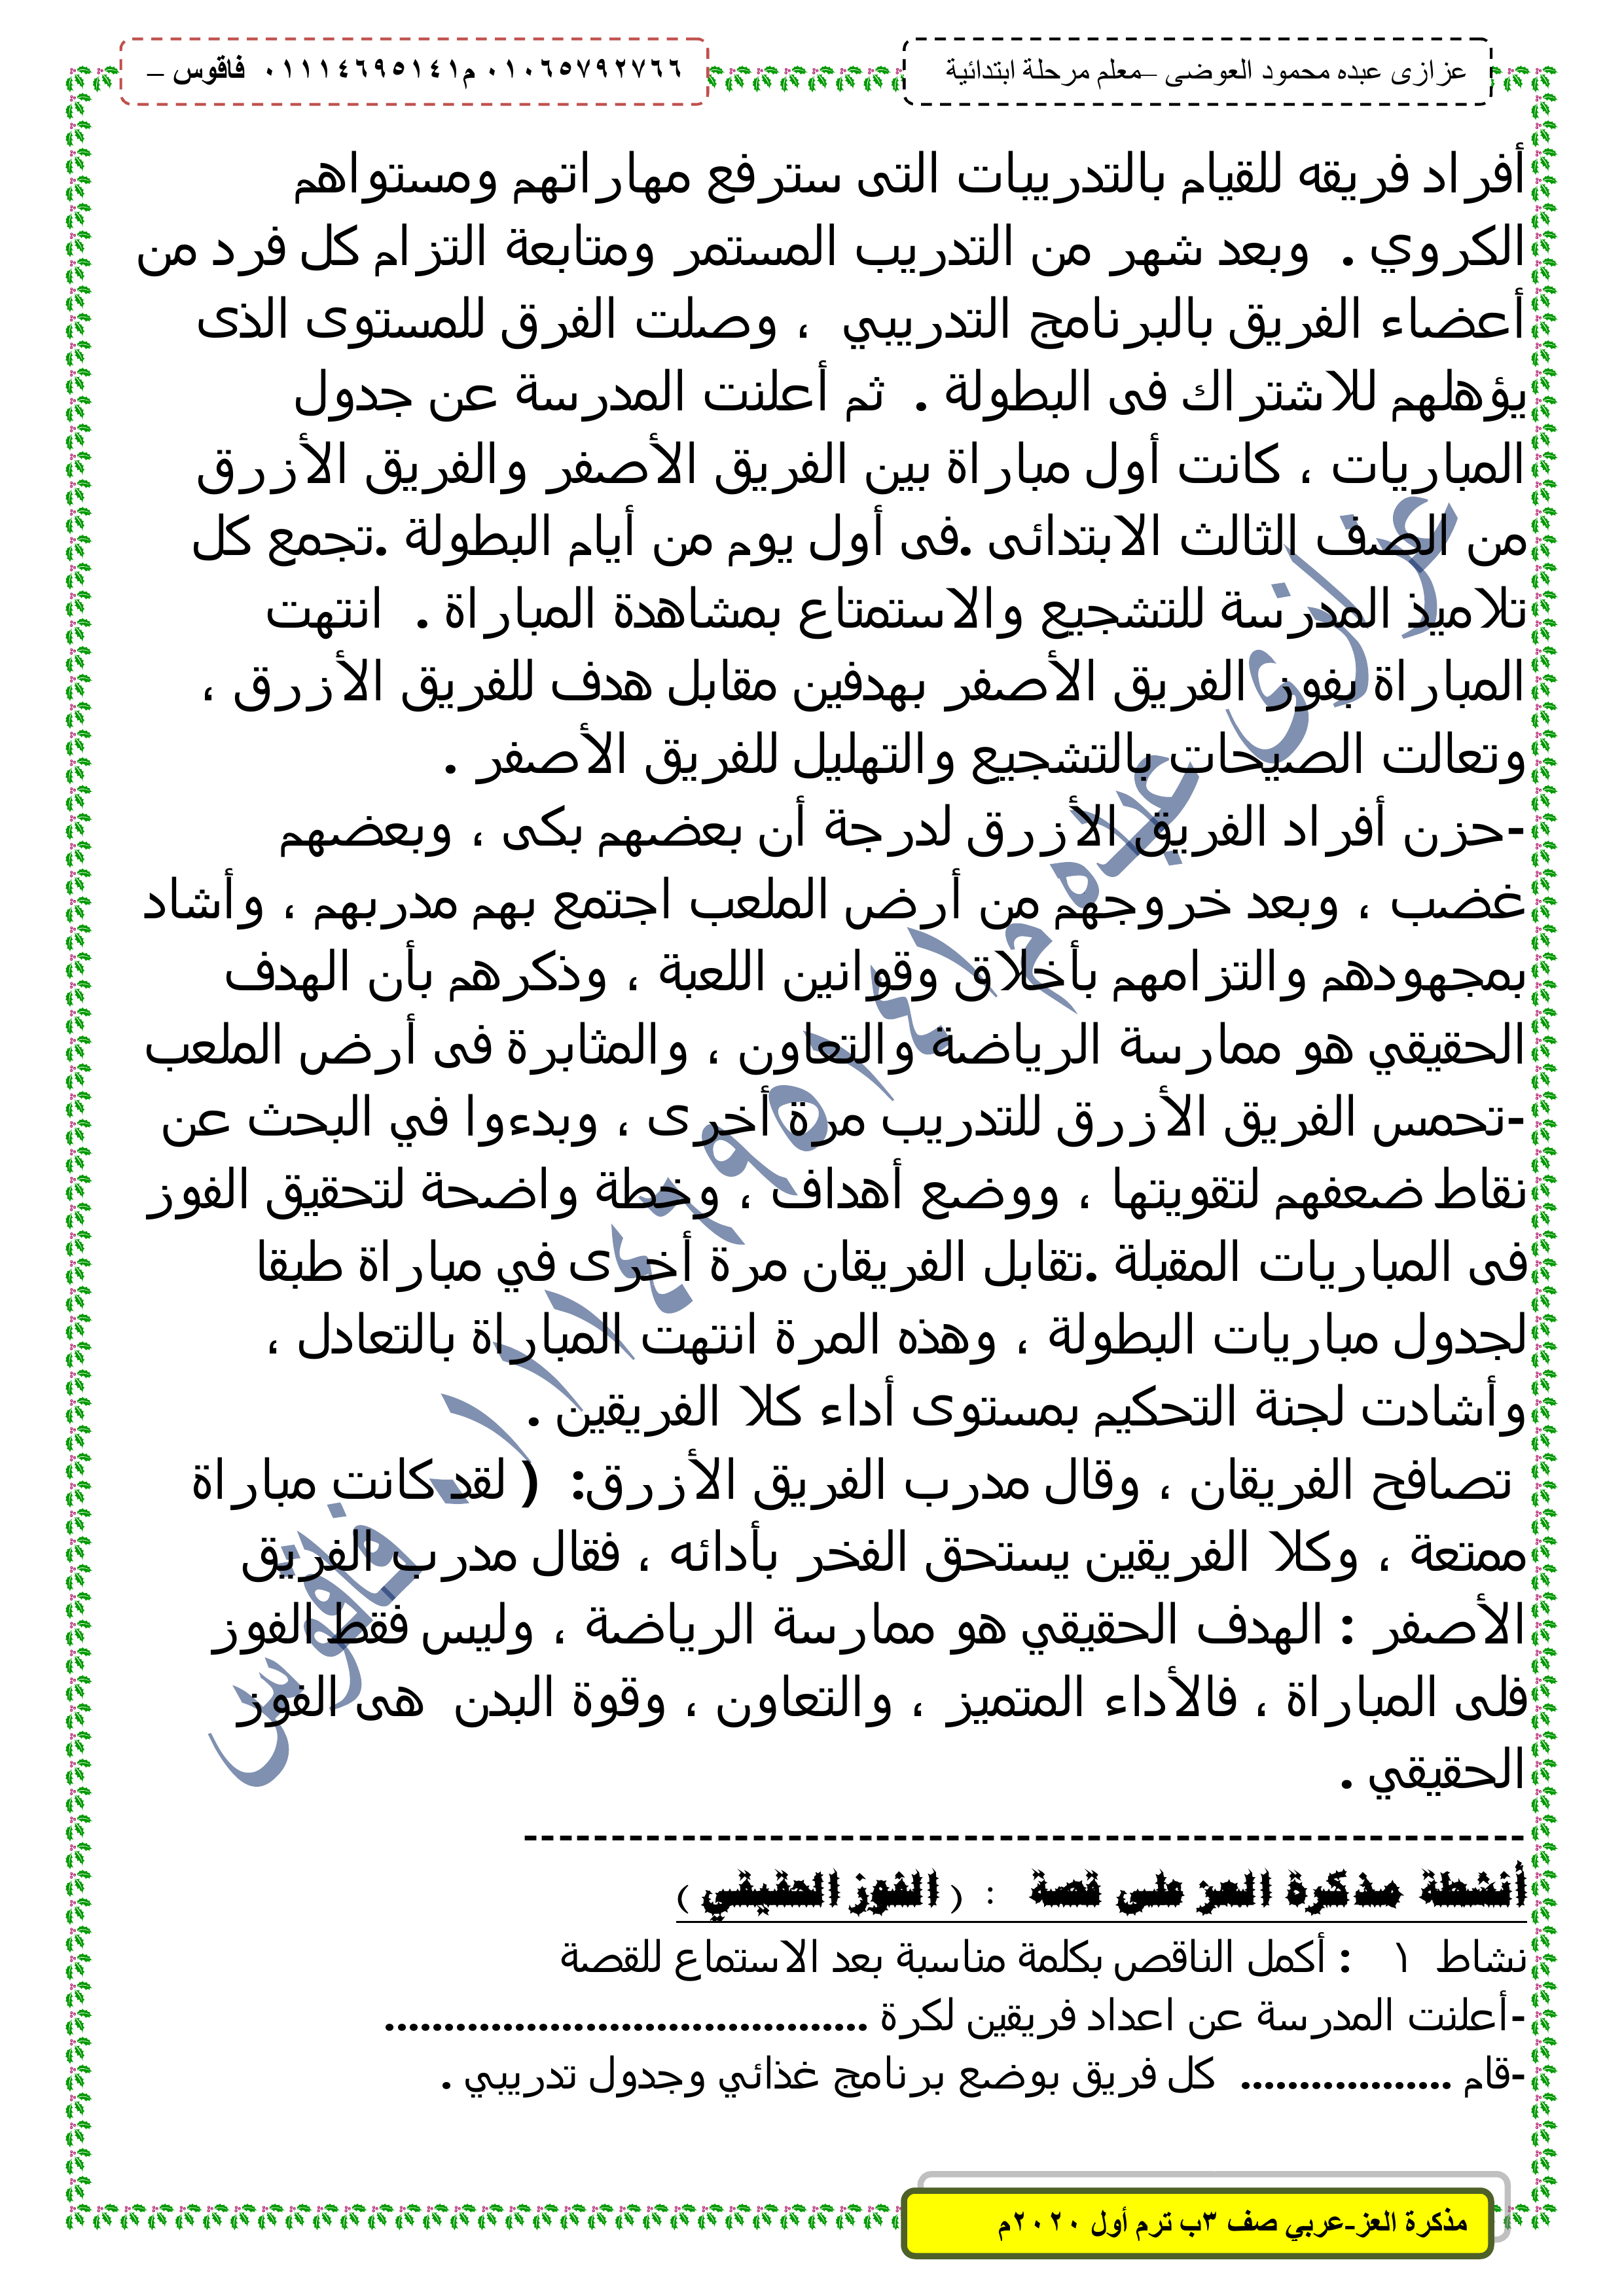 عزازى عبده محمود العوضى –معلم مرحلة ابتدائية
٠١٠٦٥٧٩٢٧٦٦ م٠١١١٤٦٩٥١٤١ فاقوس –
أفراد فريقه للقيام بالتدريبات التى سترفع مهاراتهم ومستواهم
الكروي . وبعد شهر من التدريب المستمر ومتابعة التزام كل فرد من
أعضاء الفريق بالبرنامج التدريبي ، وصلت الفرق للمستوى الذى
يؤهلهم للاشتراك فى البطولة . ثم أعلنت المدرسة عن جدول
المباريات ، كانت أول مباراة بين الفريق الأصفر والفريق الأزرق
من الصف الثالث الابتدائى .فى أول يوم من أيام البطولة .تجمع كل
تلاميذ المدرسة للتشجيع والاستمتاع بمشاهدة المباراة . انتهت
المباراة بفوز الفريق الأصفر بهدفين مقابل هدف للفريق الأزرق ،
وتعالت الصيحات بالتشجيع والتهليل للفريق الأصفر .
-حزن أفراد الفريق الأزرق لدرجة أن بعضهم بكى ، وبعضهم
غضب ، وبعد خروجهم من أرض الملعب اجتمع بهم مدربهم ، وأشاد
بمجهودهم والتزامهم بأخلاق وقوانين اللعبة ، وذكرهم بأن الهدف
الحقيقي هو ممارسة الرياضة والتعاون ، والمثابرة فى أرض الملعب
-تحمس الفريق الأزرق للتدريب مرة أخرى ، وبدءوا في البحث عن
نقاط ضعفهم لتقويتها ، ووضع أهداف ، وخطة واضحة لتحقيق الفوز
فى المباريات المقبلة .تقابل الفريقان مرة أخرى في مباراة طبقا
لجدول مباريات البطولة ، وهذه المرة انتهت المباراة بالتعادل ،
وأشادت لجنة التحكيم بمستوى أداء كلا الفريقين .
تصافح الفريقان ، وقال مدرب الفريق الأزرق: ( لقد كانت مباراة
ممتعة ، وكلا الفريقين يستحق الفخر بأدائه ، فقال مدرب الفريق
الأصفر : الهدف الحقيقي هو ممارسة الرياضة ، وليس فقط الفوز
فلى المباراة ، فالأداء المتميز ، والتعاون ، وقوة البدن هى الفوز
الحقيقي .
---------------------------------------------------------
أنشطة مذكرة العز على قصة : ( الفوز الحقيقي )
نشاط ١ : أكمل الناقص بكلمة مناسبة بعد الاستماع للقصة
-أعلنت المدرسة عن اعداد فريقين لكرة .........................................
-قام .................. كل فريق بوضع برنامج غذائي وجدول تدريبي .
مذكرة العز-عربي صف ٣ب ترم أول ٢٠٢٠م
عزازى عبده م٠١١١٤٦٩٥١٤١ فاقوس